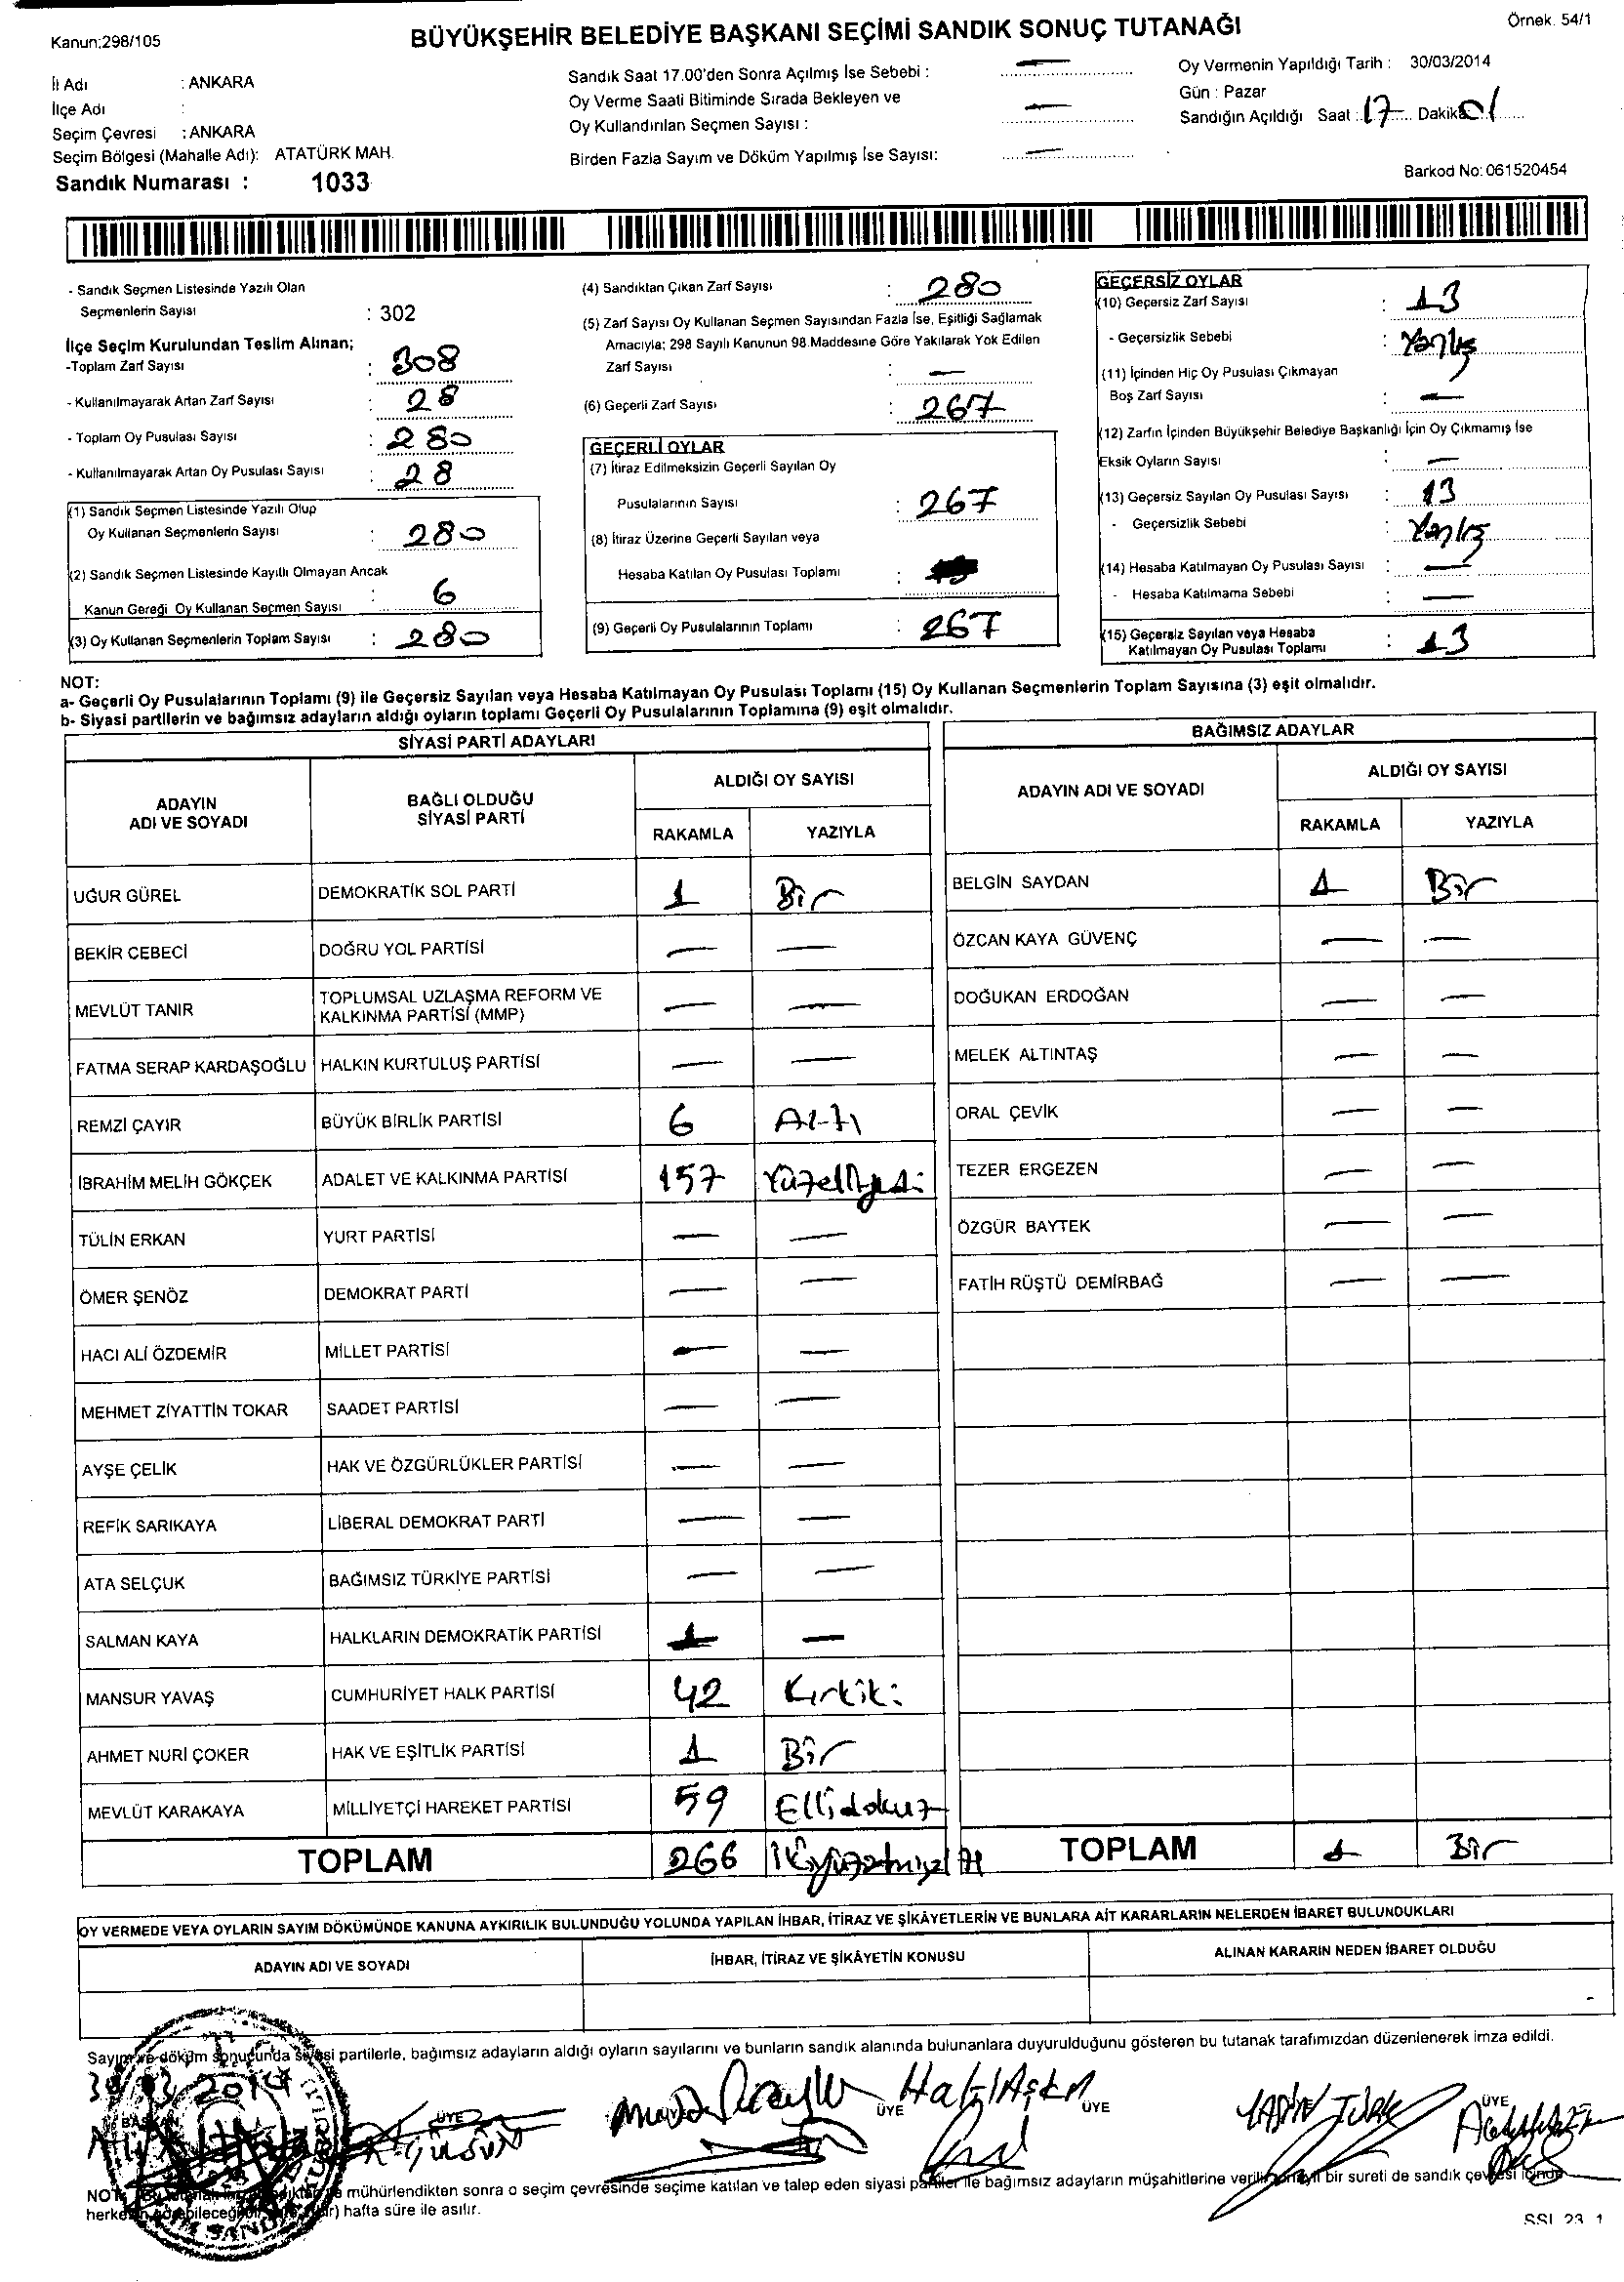 Kanun:298/105
BÜYÜKŞEHİR BELEDİYE BAŞKANI SEÇİMİ SANDIK SONUÇ TUTANAĞI
Örnek. 54/1
İl Adı : ANKARA
İlçe Adı :
Seçim Çevresi : ANKARA
Seçim Bölgesi (Mahalle Adı): ATATÜRK MAH.
Sandık Numarası : 1033
Sandık Saat 17.00'den Sonra Açılmış İse Sebebi : —
Oy Verme Saati Bitiminde Sırada Bekleyen ve
Oy Kullandırılan Seçmen Sayısı : —
Birden Fazla Sayım ve Döküm Yapılmış İse Sayısı: —
Oy Vermenin Yapıldığı Tarih : 30/03/2014
Gün : Pazar
Sandığın Açıldığı Saat : 17 Dakika 01
Barkod No: 061520454
- Sandık Seçmen Listesinde Yazılı Olan
Seçmenlerin Sayısı : 302
İlçe Seçim Kurulundan Teslim Alınan;
-Toplam Zarf Sayısı : 308
- Kullanılmayarak Artan Zarf Sayısı : 28
- Toplam Oy Pusulası Sayısı : 280
- Kullanılmayarak Artan Oy Pusulası Sayısı : 28
(1) Sandık Seçmen Listesinde Yazılı Olup
Oy Kullanan Seçmenlerin Sayısı : 280
(2) Sandık Seçmen Listesinde Kayıtlı Olmayan Ancak
Kanun Gereği Oy Kullanan Seçmen Sayısı : 6
(3) Oy Kullanan Seçmenlerin Toplam Sayısı : 280
(4) Sandıktan Çıkan Zarf Sayısı : 280
(5) Zarf Sayısı Oy Kullanan Seçmen Sayısından Fazla İse, Eşitliği Sağlamak
Amacıyla; 298 Sayılı Kanunun 98.Maddesine Göre Yakılarak Yok Edilen
Zarf Sayısı : —
(6) Geçerli Zarf Sayısı : 267
GEÇERLİ OYLAR
(7) İtiraz Edilmeksizin Geçerli Sayılan Oy
Pusulalarının Sayısı : 267
(8) İtiraz Üzerine Geçerli Sayılan veya
Hesaba Katılan Oy Pusulası Toplamı :
(9) Geçerli Oy Pusulalarının Toplamı : 267
GEÇERSİZ OYLAR
(10) Geçersiz Zarf Sayısı : 13
- Geçersizlik Sebebi : Yanlış
(11) İçinden Hiç Oy Pusulası Çıkmayan
Boş Zarf Sayısı : —
(12) Zarfın İçinden Büyükşehir Belediye Başkanlığı İçin Oy Çıkmamış İse
Eksik Oyların Sayısı : —
(13) Geçersiz Sayılan Oy Pusulası Sayısı : 13
- Geçersizlik Sebebi : Yanlış
(14) Hesaba Katılmayan Oy Pusulası Sayısı : —
- Hesaba Katılmama Sebebi : —
(15) Geçersiz Sayılan veya Hesaba
Katılmayan Oy Pusulası Toplamı : 13
NOT:
a- Geçerli Oy Pusulalarının Toplamı (9) ile Geçersiz Sayılan veya Hesaba Katılmayan Oy Pusulası Toplamı (15) Oy Kullanan Seçmenlerin Toplam Sayısına (3) eşit olmalıdır.
b- Siyasi partilerin ve bağımsız adayların aldığı oyların toplamı Geçerli Oy Pusulalarının Toplamına (9) eşit olmalıdır.
SİYASİ PARTİ ADAYLARI
ADAYIN ADI VE SOYADI
BAĞLI OLDUĞU SİYASİ PARTİ
ALDIĞI OY SAYISI
RAKAMLA YAZIYLA
UĞUR GÜREL DEMOKRATİK SOL PARTİ 1 Bir
BEKİR CEBECİ DOĞRU YOL PARTİSİ — —
MEVLÜT TANIR TOPLUMSAL UZLAŞMA REFORM VE
KALKINMA PARTİSİ (MMP) — —
FATMA SERAP KARDAŞOĞLU HALKIN KURTULUŞ PARTİSİ — —
REMZİ ÇAYIR BÜYÜK BİRLİK PARTİSİ 6 Altı
İBRAHİM MELİH GÖKÇEK ADALET VE KALKINMA PARTİSİ 157 Yüzelliyedi
TÜLİN ERKAN YURT PARTİSİ — —
ÖMER ŞENÖZ DEMOKRAT PARTİ — —
HACI ALİ ÖZDEMİR MİLLET PARTİSİ — —
MEHMET ZİYATTİN TOKAR SAADET PARTİSİ — —
AYŞE ÇELİK HAK VE ÖZGÜRLÜKLER PARTİSİ — —
REFİK SARIKAYA LİBERAL DEMOKRAT PARTİ — —
ATA SELÇUK BAĞIMSIZ TÜRKİYE PARTİSİ — —
SALMAN KAYA HALKLARIN DEMOKRATİK PARTİSİ — —
MANSUR YAVAŞ CUMHURİYET HALK PARTİSİ 42 Kırkiki
AHMET NURİ ÇOKER HAK VE EŞİTLİK PARTİSİ 1 Bir
MEVLÜT KARAKAYA MİLLİYETÇİ HAREKET PARTİSİ 59 Ellidokuz
TOPLAM 266 İkiyüzatmışaltı
BAĞIMSIZ ADAYLAR
ADAYIN ADI VE SOYADI
ALDIĞI OY SAYISI
RAKAMLA YAZIYLA
BELGİN SAYDAN 1 Bir
ÖZCAN KAYA GÜVENÇ — —
DOĞUKAN ERDOĞAN — —
MELEK ALTINTAŞ — —
ORAL ÇEVİK — —
TEZER ERGEZEN — —
ÖZGÜR BAYTEK — —
FATİH RÜŞTÜ DEMİRBAĞ — —
TOPLAM 1 Bir
OY VERMEDE VEYA OYLARIN SAYIM DÖKÜMÜNDE KANUNA AYKIRILIK BULUNDUĞU YOLUNDA YAPILAN İHBAR, İTİRAZ VE ŞİKÂYETLERİN VE BUNLARA AİT KARARLARIN NELERDEN İBARET BULUNDUKLARI
ADAYIN ADI VE SOYADI İHBAR, İTİRAZ VE ŞİKÂYETİN KONUSU ALINAN KARARIN NEDEN İBARET OLDUĞU
Sayım ve döküm sonucunda siyasi partilerle, bağımsız adayların aldığı oyların sayılarını ve bunların sandık alanında bulunanlara duyurulduğunu gösteren bu tutanak tarafımızdan düzenlenerek imza edildi.
30 03 2014
BAŞKAN ÜYE ÜYE ÜYE ÜYE
mühürlendikten sonra o seçim çevresinde seçime katılan ve talep eden siyasi partiler ile bağımsız adayların müşahitlerine bir sureti de sandık çevresi içinde
hafta süre ile asılır.